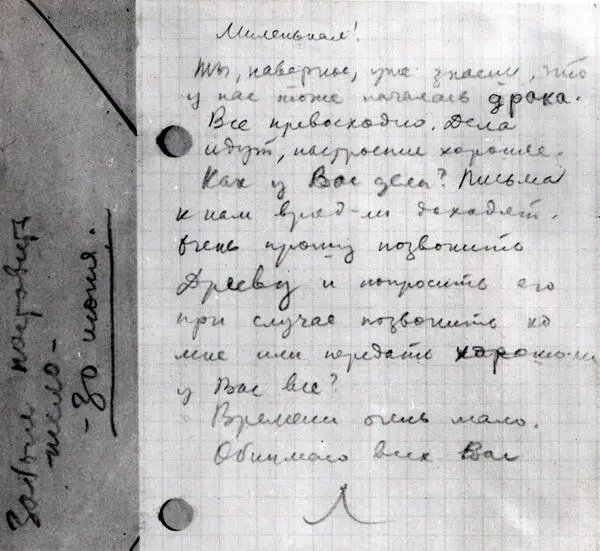 Миленькая!
Ты, наверное, уже знаешь, что
у нас тоже началась драка.
Все превосходно. Дела
идут, настроение хорошее.
Как у Вас дела? Письма
к нам вряд-ли доходят.
Очень прошу позвонить
Дрееву и попросить его
при случае позвонить ко
мне или передать хорошо-ли
у Вас все?
Времени очень мало.
Обнимаю всех Вас
Л
Забыл поставить
число-
-30 июня.